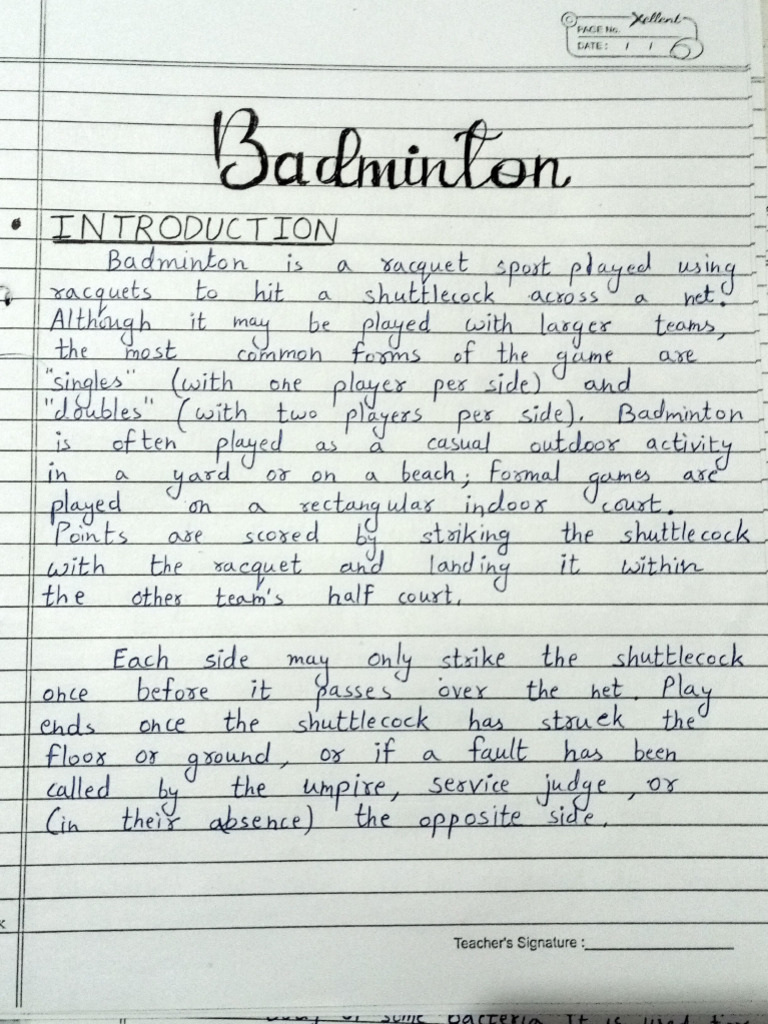 Xellent
PAGE No.
DATE : / /
Badminton
• INTRODUCTION
Badminton is a racquet sport played using
racquets to hit a shuttlecock across a net.
Although it may be played with larger teams,
the most common forms of the game are
"singles" (with one player per side) and
"doubles" (with two players per side). Badminton
is often played as a casual outdoor activity
in a yard or on a beach; formal games are
played on a rectangular indoor court.
Points are scored by striking the shuttlecock
with the racquet and landing it within
the other team's half court.
Each side may only strike the shuttlecock
once before it passes over the net. Play
ends once the shuttlecock has struck the
floor or ground, or if a fault has been
called by the umpire, service judge, or
(in their absence) the opposite side.
Teacher's Signature :
some bacteria. It is used